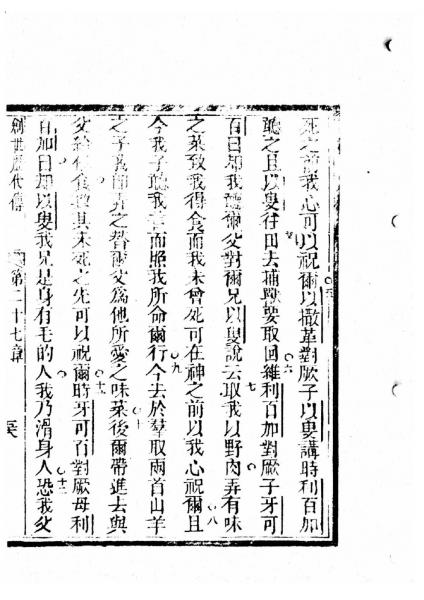 死之前我心可以祝爾以撒革對厥子以叟講時利百加
聽之且以叟往田去捕獸要取回維利百加對厥子牙可
百曰却我聽爾父對爾兄以叟說云取我以野肉弄有味
之菜致我得食而我未曾死可在神之前以我心祝爾且
今我子聽我言而照我所命爾行今去於羣取兩首山羊
之子我卽弄之替爾父為他所愛之味菜後爾帶進去與
父給他食致其未死之先可以祝爾時牙可百對厥母利
百加曰却以叟我兄是身有毛的人我乃滑身人恐我父
創世歷代傳 第二十七章
五 六 七 八 九 十 十一 十二